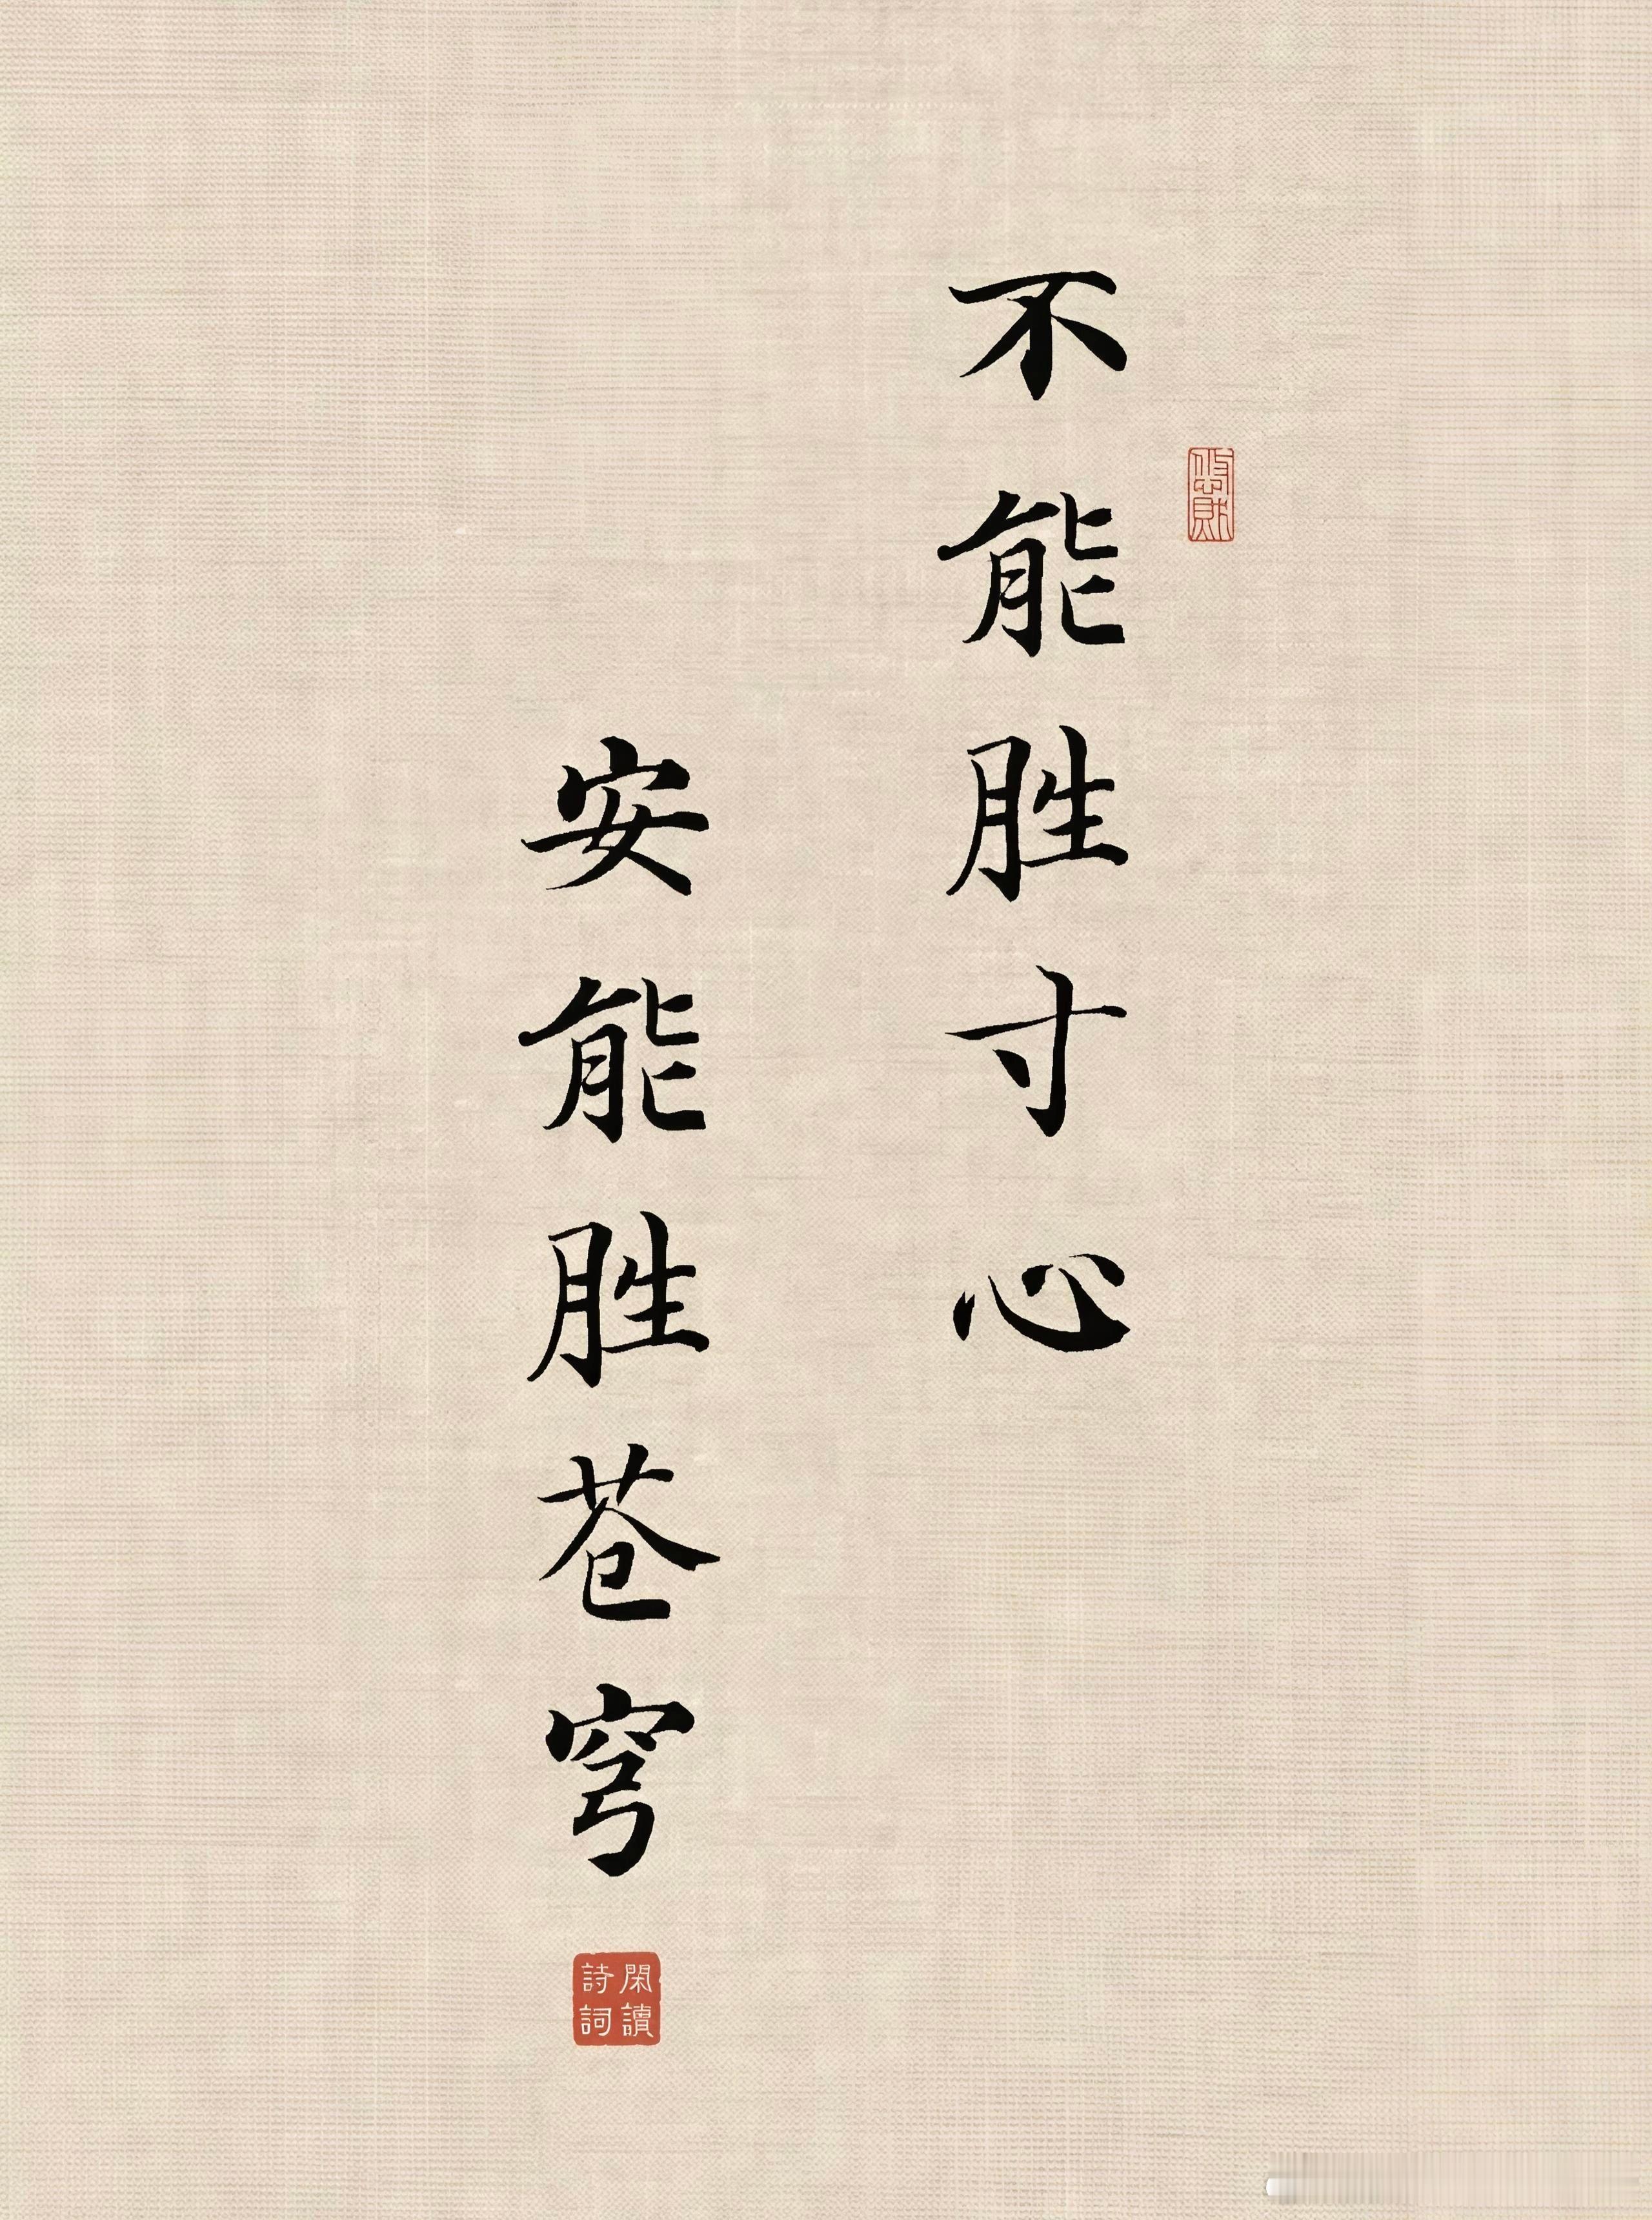 不能胜寸心
安能胜苍穹
閑讀
詩詞